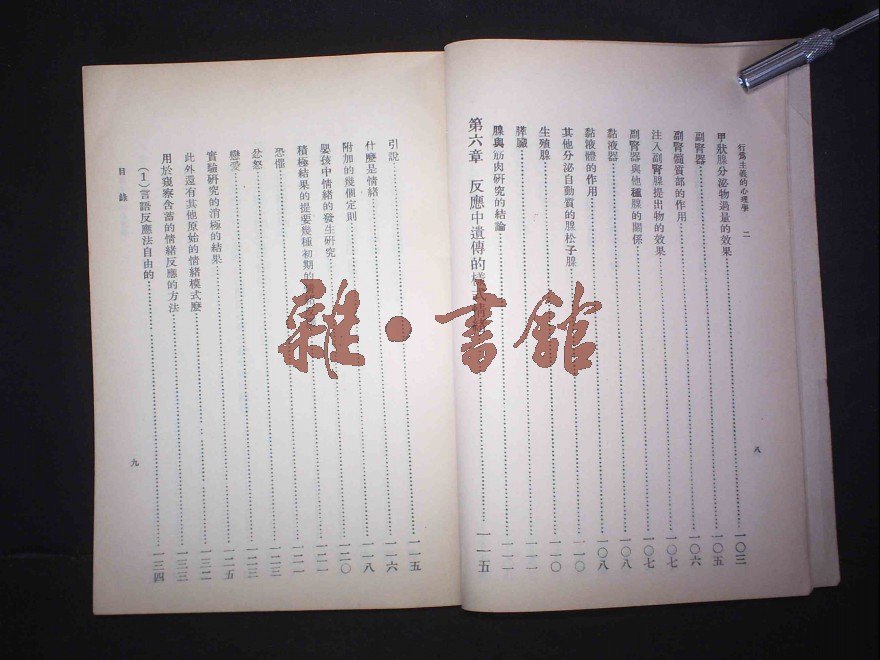 行爲主義的心理學 二
八
甲狀腺分泌物過量的效果……一〇三
副腎器……一〇五
副腎髓質部的作用……一〇六
注入副腎腺提出物的效果……一〇七
副腎器與他種腺的關係……一〇七
黏液器……一〇八
黏液體的作用……一〇八
其他分泌自動質的腺松子腺……一一〇
生殖腺……一一〇
脾臟……一一一
腺與筋肉研究的結論……一一一
第六章 反應中遺傳的樣式情緒……一一五
引說……一一五
什麼是情緒……一一六
附加的幾個定則……一一八
嬰孩中情緒的發生研究……一二〇
積極結果的提要幾種初期的……一二一
恐懼……一二一
忿怒……一二三
戀愛……一二三
實驗研究的消極的結果……一二五
此外還有其他原始的情緒模式麼……一三二
用於窺察含蓄的情緒反應的方法……一三三
(1)言語反應法自由的……一三四
目錄
九
雜·書館